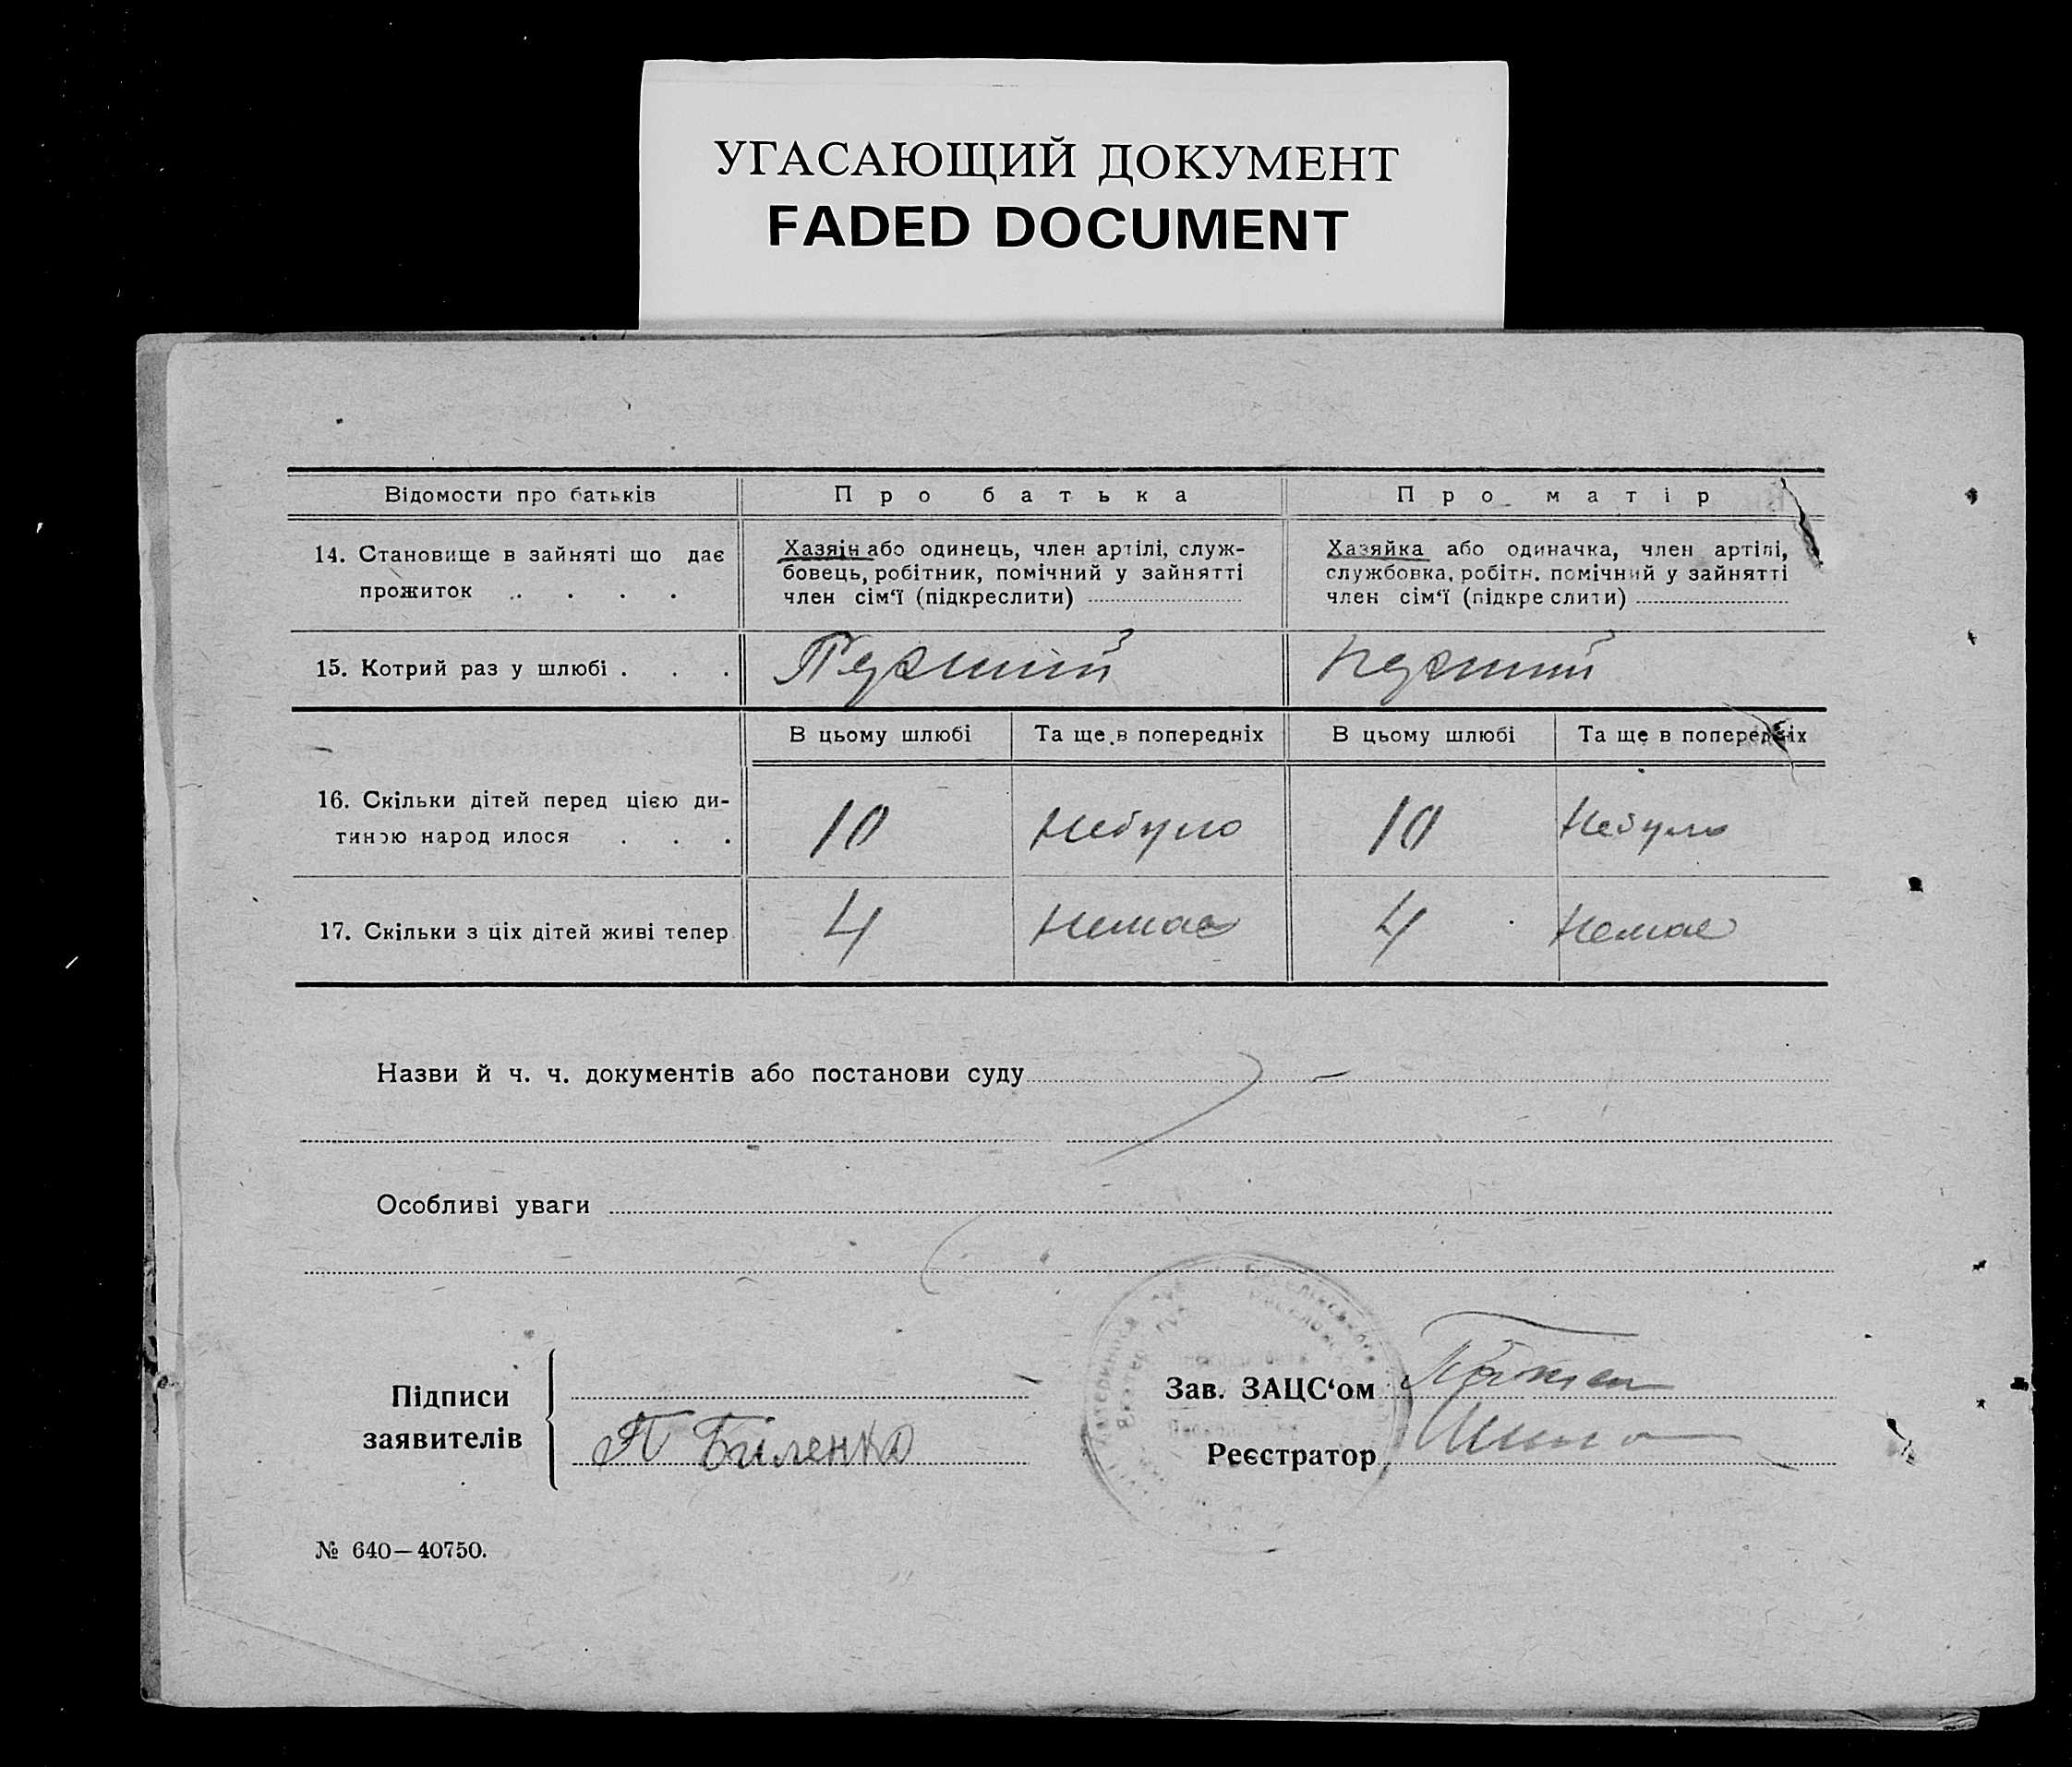 УГАСАЮЩИЙ ДОКУМЕНТ
FADED DOCUMENT
Відомости про батьків
Про батька
Про матір
14. Становище в зайняті що дає
прожиток . . . .
Хазяін або одинець, член артілі, служ-
бовець, робітник, помічний у зайнятті
член сім‘ї (підкреслити)
Хазяйка або одиначка, член артілі,
службовка, робітн. помічний у зайнятті
член сім‘ї (підкре слити)
15. Котрий раз у шлюбі . . .
Перший
Перший
В цьому шлюбі
Та ще в попередніх
В цьому шлюбі
Та ще в попередніх
16. Скільки дітей перед цією ди-
тиною народ илося . . .
10
Небуло
10
Небуло
17. Скільки з ціх дітей живі тепер
4
Немає
4
Немає
Назви й ч. ч. документів або постанови суду
Особливі уваги
Підписи
заявителів
П Біленко
Зав. ЗАЦС‘ом
Реєстратор
№ 640—40750.